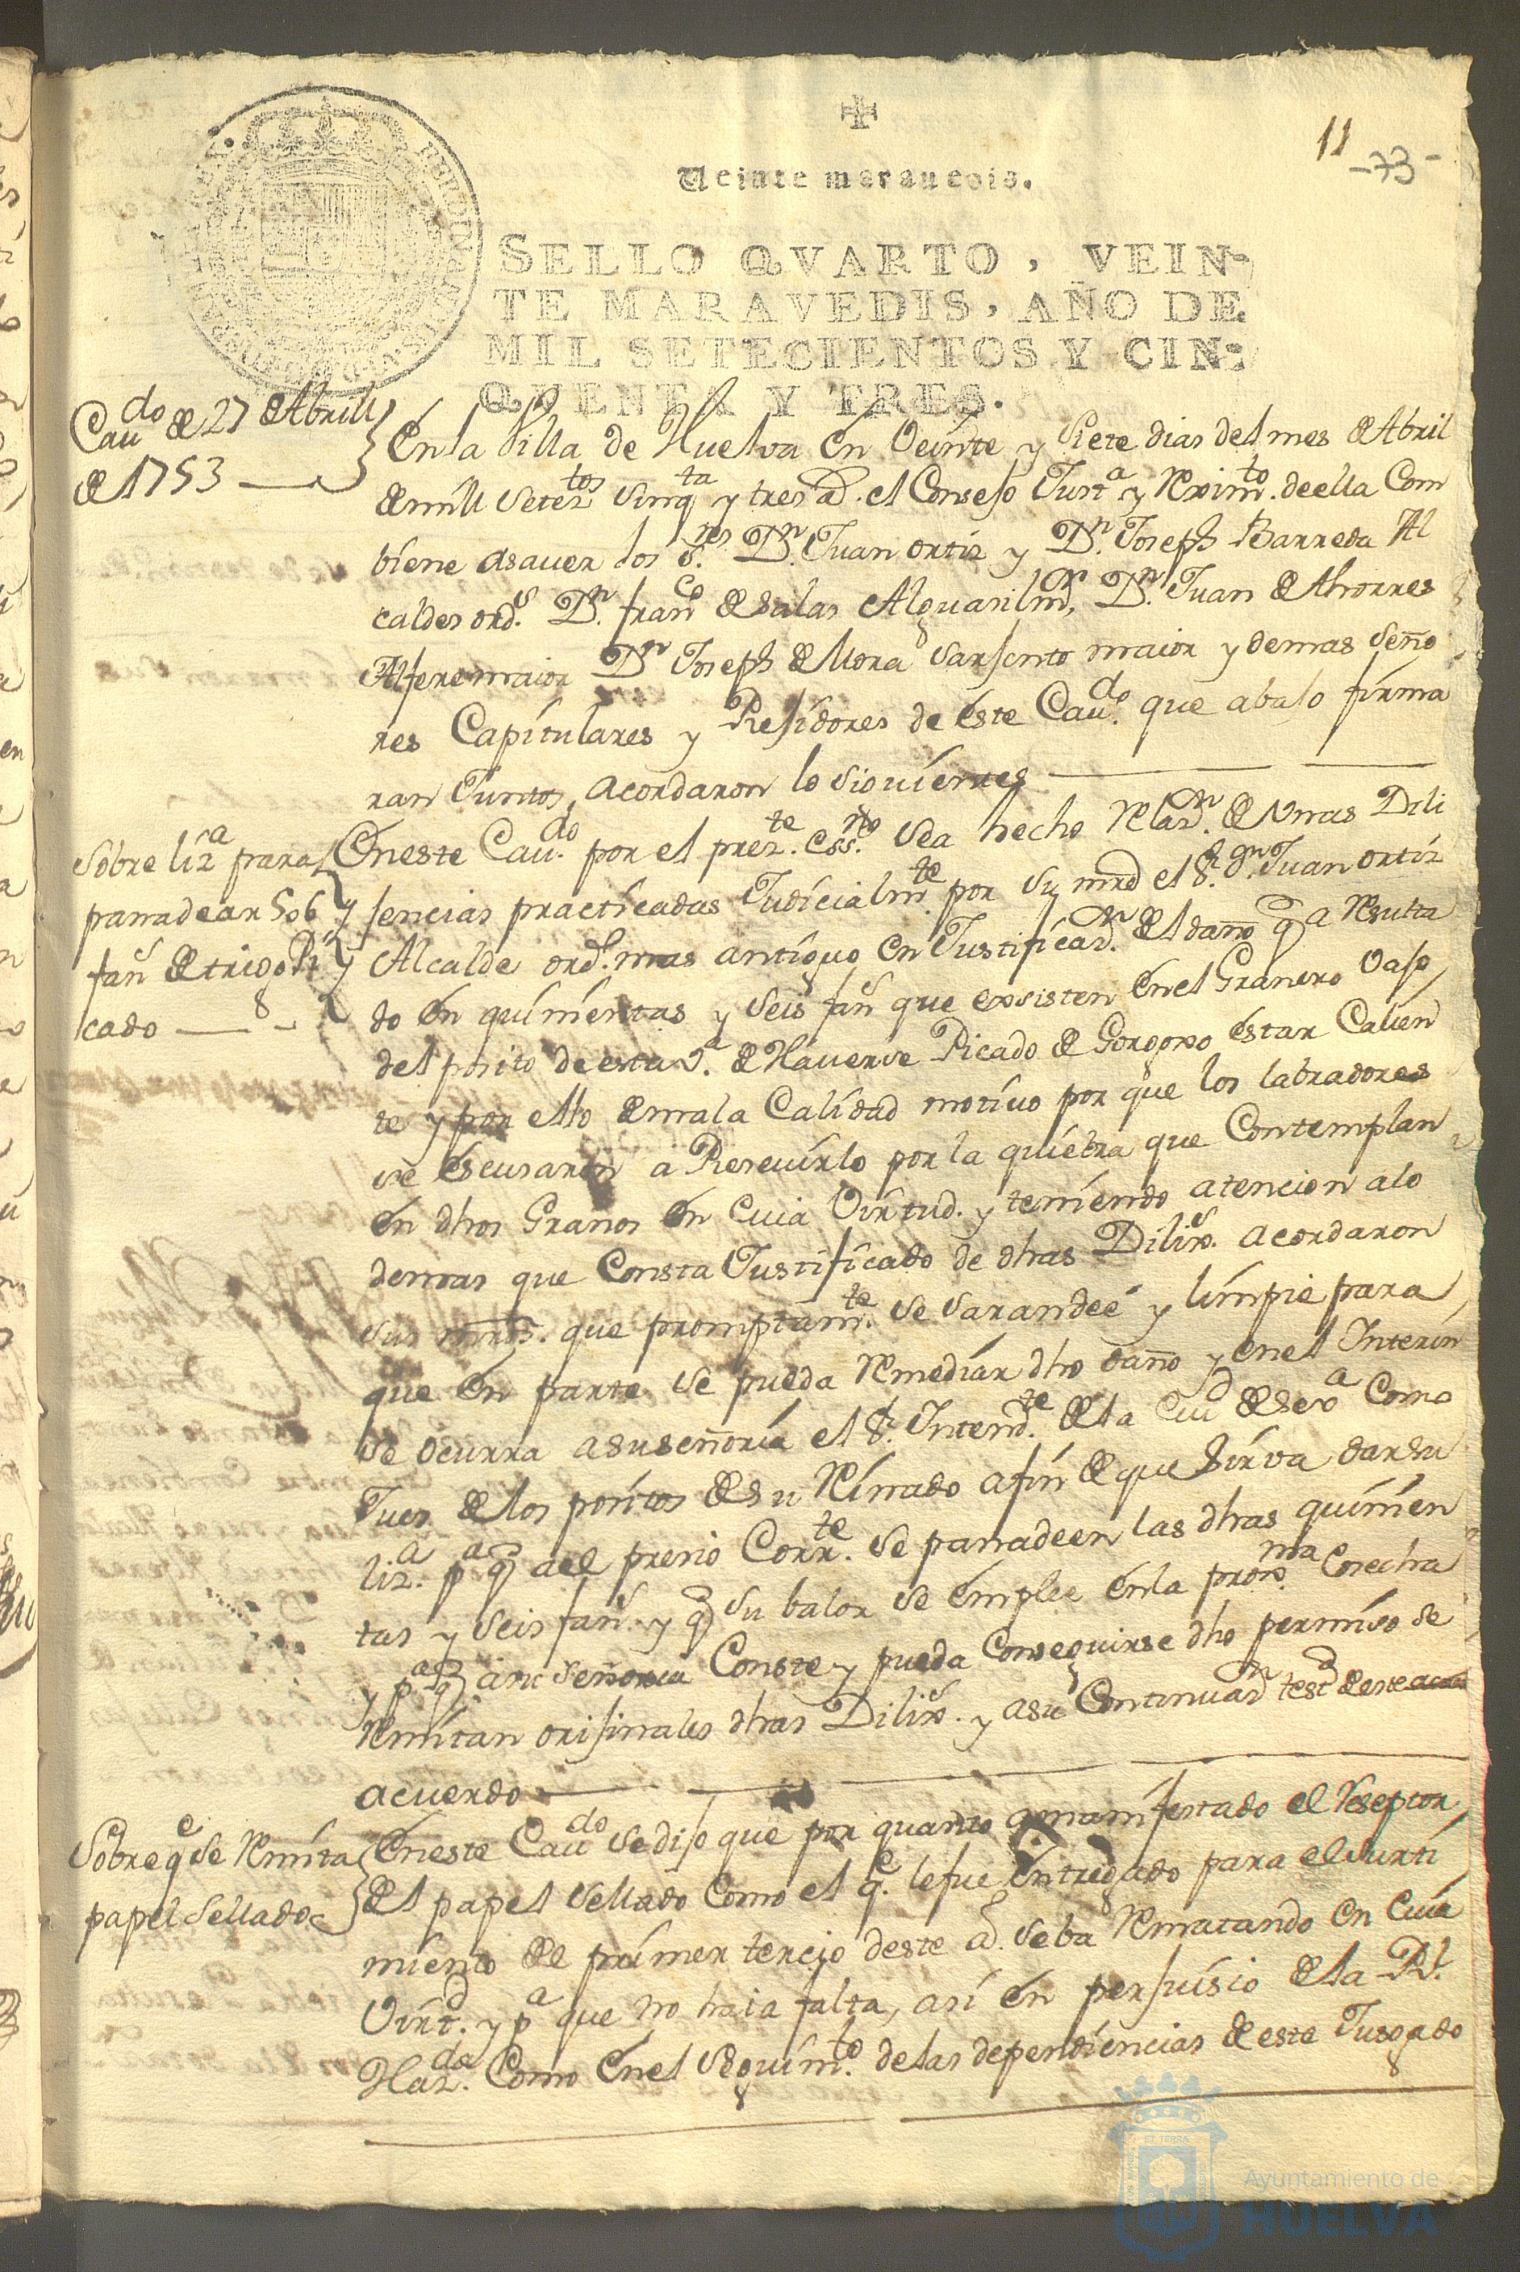 11
-73-
Veinte marauedis.
SELLO QVARTO, VEIN-
TE MARAVEDIS, AÑO DE
MIL SETECIENTOS Y CIN-
QVENTA Y TRES.
Cau.do de 27 de Abrill
de 1753
En la Villa de Huelva en Veinte y siete dias del mes de Abril
de mill setez.tos sinq.ta y tres a.s el Consejo Just.a y Rexim.to de ella Com
biene asauer los S.res D.n Juan ortiz y D.n Joseph Barreda Al
caldes ord.s D.n fran.co de salas Alguasil m.r, D.n Juan de
Alferemaior D.n Joseph de Mora sarjento maior y demas seño
res Capitulares y Rejidores de este Cau.do que abajo firma
ran Juntos, acordaron lo siguiente
Sobre liz.a para
panadear 506
fan.s de trigo Pi
cado
En este Cau.do por el prez.te ess.no sea hecho Relaz.n de Unas Dili
jencias practicadas Judicialm.te por su mrd el S.r D.n Juan ortiz
Alcalde ord.o mas antiguo en Justificaz.n del daño q a Resulta
do en quinientas y seis fan.s que exsisten en el Granero vajo
del posito de esta V.a de Hauerse Picado de Gorgoxo estar Calien
te y por ello de mala Calidad motivo por que los labradores
se escusaron a Reseuirlo por la quiebra que Contemplan
en dhos Granos en Cuia Virtud. y teniendo atencion alo
demas que Consta Justificado de dhas Dilix.s acordaron
sus mrds. que promptam.te se sarandeé y limpie para
que en parte se pueda Remediar dho daño y en el Interin
se ocurra a su señoria el S.r Intend.te de la Ciud de Sev.a Como
Juez de los positos de su Reinado afin de que sirva dar su
liz.a p.a q ael presio Corr.te se panadeen las dhas quinien
tas y seis fan.s y q su balor se emplee en la prox.ma Cosecha
y p.a q a su señoria Conste y pueda Conseguirse dho permiso se
Remitan orijinales dhas Dilix.s y a su Continuaz.n test.o de este
acuerdo
Sobre q.e se Remita
papel sellado
En este Cau.do se dijo que por quanto a manifestado el Reseptor
del papel sellado Como el q.e le fue entregado para el surti
miento del primer tercio deste a.o se ba Rematando en Cuia
Virt.d y p.a que no haia falta, asi en perjuisio de la R.l
Haz.da Como en el seguim.to de las dependiencias de este Jusgado
Ayuntamiento de
HUELVA